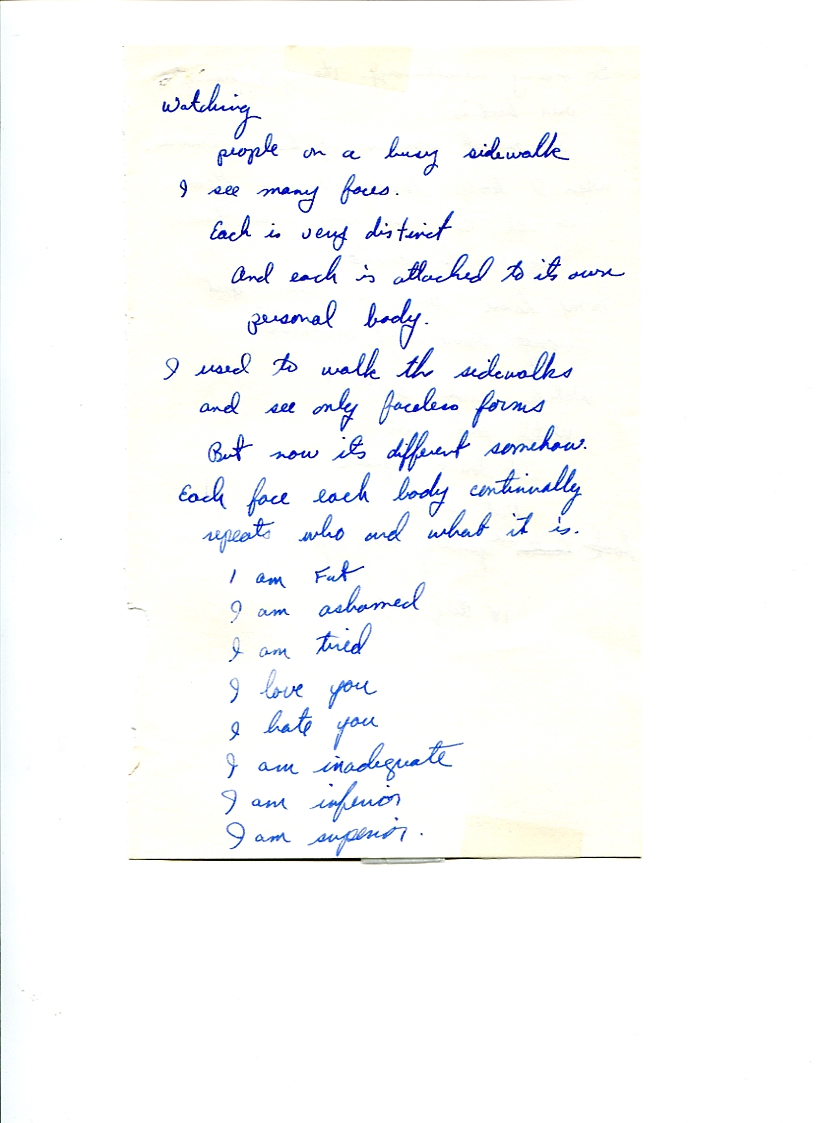 Watching
people on a busy sidewalk
I see many faces.
Each is very distinct
And each is attached to its own
personal body.
I used to walk th sidewalks
and see only faceless forms
But now its different somehow.
Each face each body continually
repeats who and what it is.
I am Fat
I am ashamed
I am tired
I love you
I hate you
I am inadequate
I am inferior
I am superior.